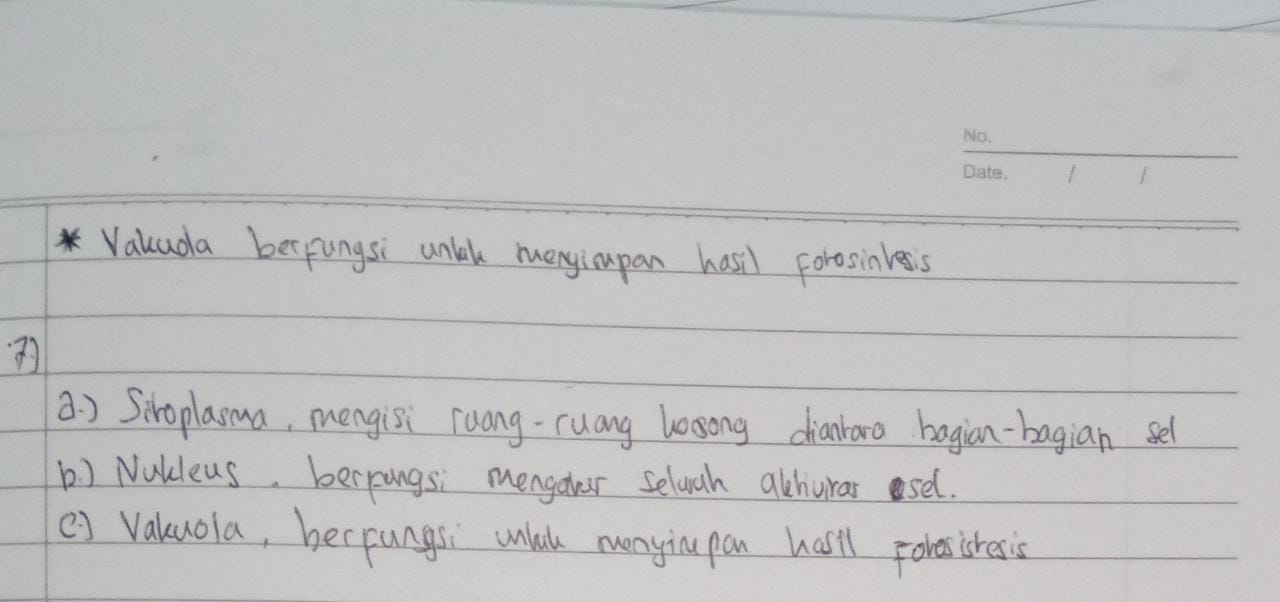 No.
Date. / /
* Vakuola berfungsi untuk menyimpan hasil fotosintesis
7)
a.) Sitoplasma, mengisi ruang-ruang kosong diantara bagian-bagian sel
b.) Nukleus, berfungsi mengatur seluruh aktivitas sel.
c.) Vakuola, berfungsi untuk menyimpan hasil fotosistesis